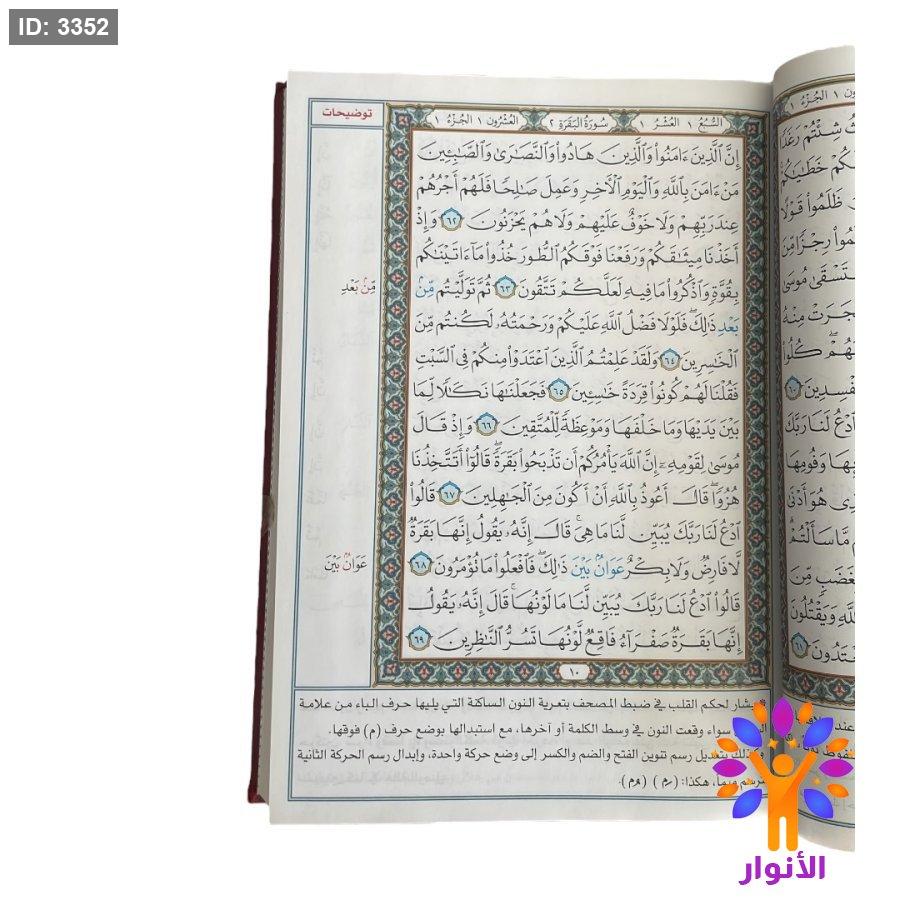 ID: 3352
توضيحات
السُّبُعُ ١ العُشْر ١ سُورَةُ البَقَرَةِ ٢ العُشْرُون ١ الجُزْءُ ١
إِنَّ ٱلَّذِينَ ءَامَنُوا۟ وَٱلَّذِينَ هَادُوا۟ وَٱلنَّصَـٰرَىٰ وَٱلصَّـٰبِـِٔينَ
مَنْ ءَامَنَ بِٱللَّهِ وَٱلْيَوْمِ ٱلْـَٔاخِرِ وَعَمِلَ صَـٰلِحًا فَلَهُمْ أَجْرُهُمْ
عِندَ رَبِّهِمْ وَلَا خَوْفٌ عَلَيْهِمْ وَلَا هُمْ يَحْزَنُونَ ٦٢ وَإِذْ
أَخَذْنَا مِيثَـٰقَكُمْ وَرَفَعْنَا فَوْقَكُمُ ٱلطُّورَ خُذُوا۟ مَآ ءَاتَيْنَـٰكُم
بِقُوَّةٍ وَٱذْكُرُوا۟ مَا فِيهِ لَعَلَّكُمْ تَتَّقُونَ ٦٣ ثُمَّ تَوَلَّيْتُم مِّنۢ
بَعْدِ ذَٰلِكَ ۖ فَلَوْلَا فَضْلُ ٱللَّهِ عَلَيْكُمْ وَرَحْمَتُهُۥ لَكُنتُم مِّنَ
ٱلْخَـٰسِرِينَ ٦٤ وَلَقَدْ عَلِمْتُمُ ٱلَّذِينَ ٱعْتَدَوْا۟ مِنكُمْ فِى ٱلسَّبْتِ
فَقُلْنَا لَهُمْ كُونُوا۟ قِرَدَةً خَـٰسِـِٔينَ ٦٥ فَجَعَلْنَـٰهَا نَكَـٰلًا لِّمَا
بَيْنَ يَدَيْهَا وَمَا خَلْفَهَا وَمَوْعِظَةً لِّلْمُتَّقِينَ ٦٦ وَإِذْ قَالَ
مُوسَىٰ لِقَوْمِهِۦٓ إِنَّ ٱللَّهَ يَأْمُرُكُمْ أَن تَذْبَحُوا۟ بَقَرَةً ۖ قَالُوٓا۟ أَتَتَّخِذُنَا
هُزُوًا ۖ قَالَ أَعُوذُ بِٱللَّهِ أَنْ أَكُونَ مِنَ ٱلْجَـٰهِلِينَ ٦٧ قَالُوا۟
ٱدْعُ لَنَا رَبَّكَ يُبَيِّن لَّنَا مَا هِىَ ۚ قَالَ إِنَّهُۥ يَقُولُ إِنَّهَا بَقَرَةٌ
لَّا فَارِضٌ وَلَا بِكْرٌ عَوَانٌۢ بَيْنَ ذَٰلِكَ ۖ فَٱفْعَلُوا۟ مَا تُؤْمَرُونَ ٦٨
قَالُوا۟ ٱدْعُ لَنَا رَبَّكَ يُبَيِّن لَّنَا مَا لَوْنُهَا ۚ قَالَ إِنَّهُۥ يَقُولُ
إِنَّهَا بَقَرَةٌ صَفْرَآءُ فَاقِعٌ لَّوْنُهَا تَسُرُّ ٱلنَّـٰظِرِينَ ٦٩
١٠
مِّنۢ بَعْدِ
عَوَانٌۢ بَيْنَ
* يشار لحكم القلب في ضبط المصحف بتعرية النون الساكنة التي يليها حرف الباء من علامة
سواء وقعت النون في وسط الكلمة أو آخرها، مع استبدالها بوضع حرف (م) فوقها.
بتعديل رسم تنوين الفتح والضم والكسر إلى وضع حركة واحدة، وإبدال رسم الحركة الثانية
هكذا:
الأنوار